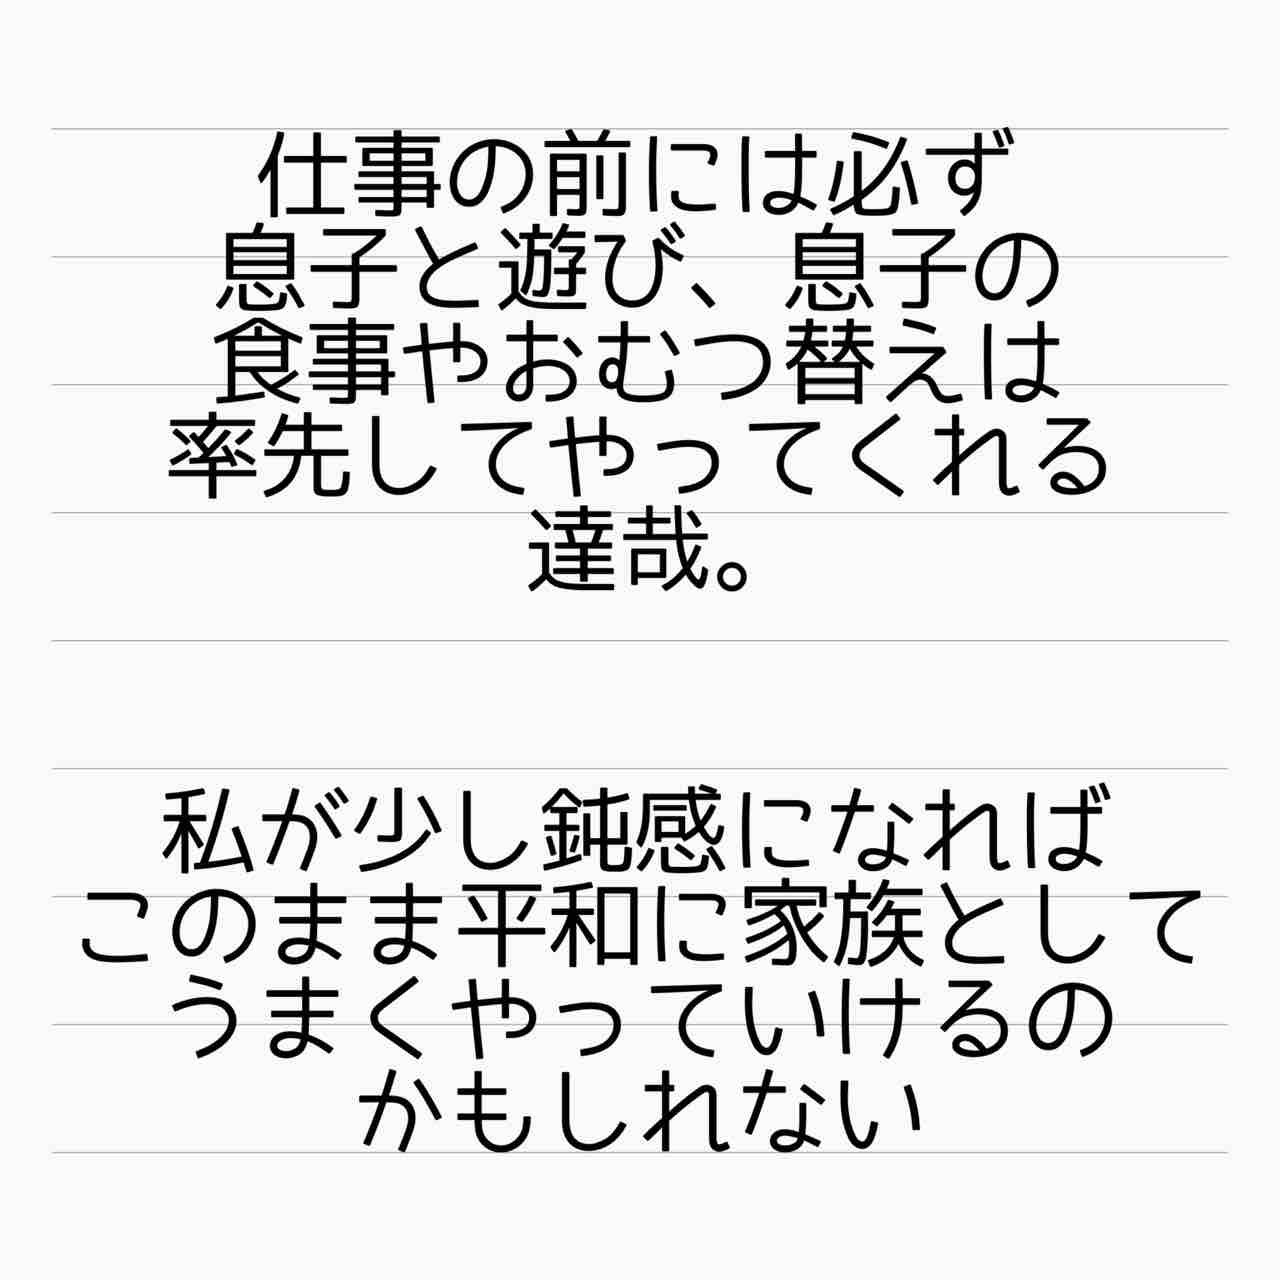 仕事の前には必ず
息子と遊び、息子の
食事やおむつ替えは
率先してやってくれる
達哉。
私が少し鈍感になれば
このまま平和に家族として
うまくやっていけるの
かもしれない